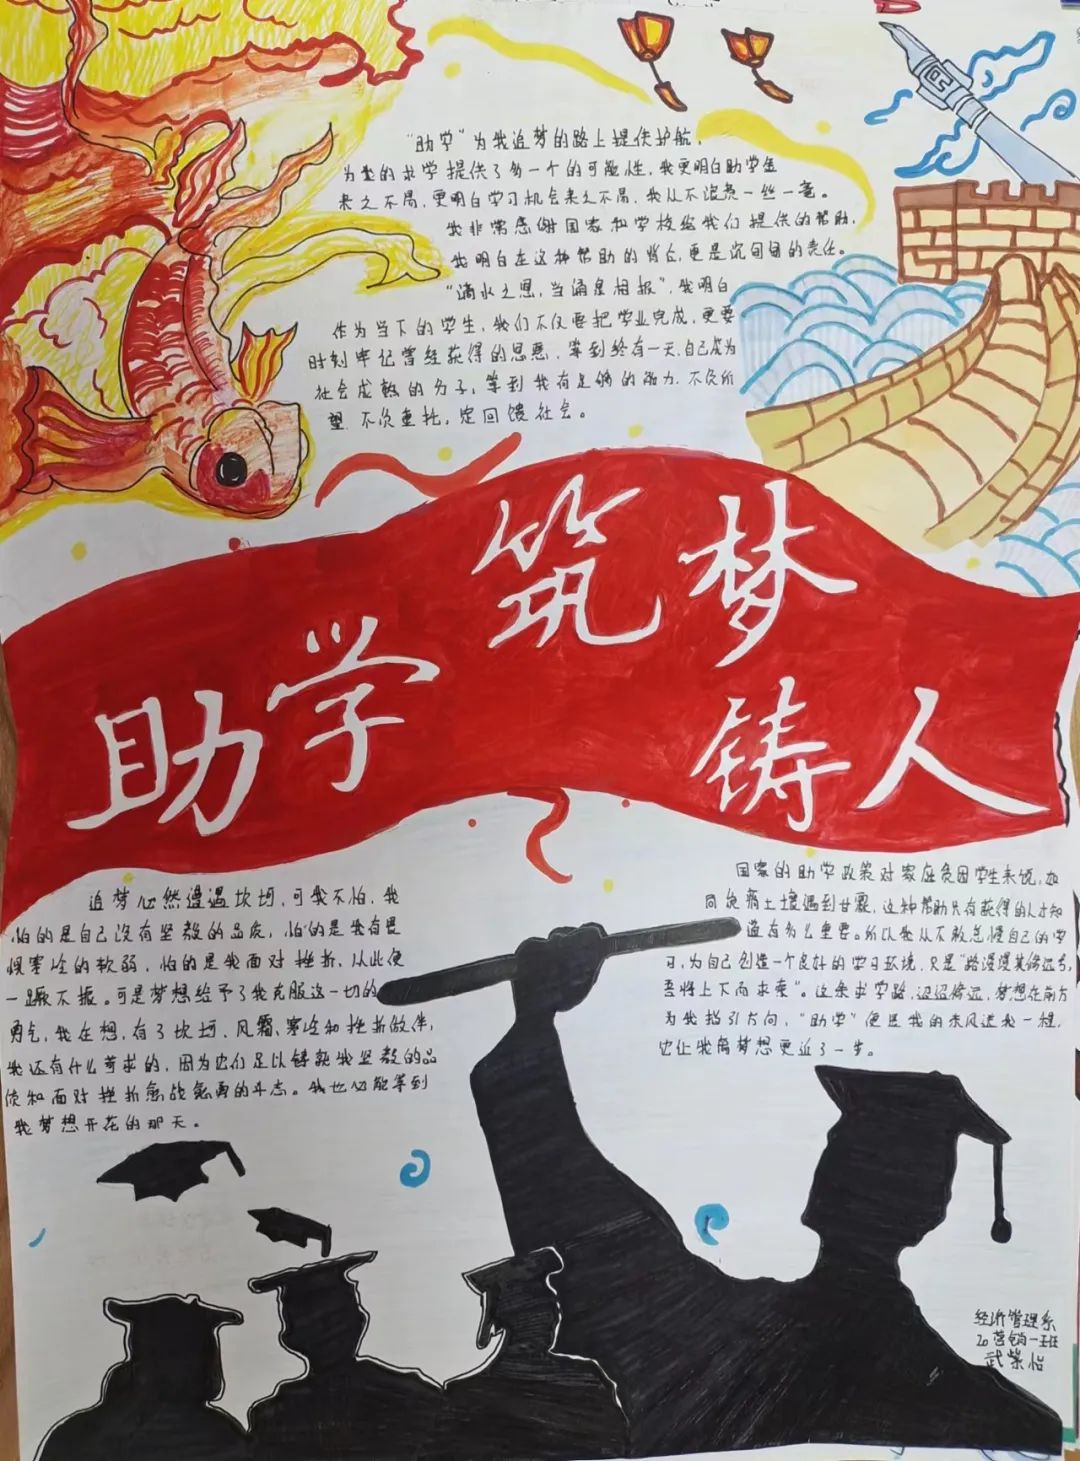 “助学”为我追梦的路上提供护航，
为我的求学提供了多一个的可能性，我更明白助学金
来之不易，更明白学习机会来之不易，我从不浪费一丝一毫。
我非常感谢国家和学校给我们提供的帮助，
我明白在这种帮助的背后，更是沉甸甸的责任。
“滴水之恩，当涌泉相报”，我明白
作为当下的学生，我们不仅要把学业完成，更要
时刻牢记曾经获得的恩惠，等到终有一天，自己成为
社会成熟的分子，等到我有足够的能力，不负所
望，不负重托，定回馈社会。
筑梦
助学
铸人
追梦必然遭遇坎坷，可我不怕，我
怕的是自己没有坚毅的品质，怕的是我有畏
惧寒冷的软弱，怕的是我面对挫折，从此便
一蹶不振。可是梦想给予了我克服这一切的
勇气，我在想，有了坎坷、风霜、寒冷和挫折做伴，
我还有什么苛求的，因为它们足以铸就我坚毅的品
质和面对挫折愈战愈勇的斗志。我也必能等到
我梦想开花的那天。
国家的助学政策对家庭贫困学生来说，如
同贫瘠土壤遇到甘霖，这种帮助只有获得的人才知
道有多么重要。所以我从不敢怠慢自己的学
习，为自己创造一个良好的学习环境，只是“路漫漫其修远兮，
吾将上下而求索”。这条求学路，迢迢修远，梦想在前方
为我指引方向，“助学”便是我的东风送我一程，
它让我离梦想更近了一步。
经济管理系
20营销一班
武紫怡